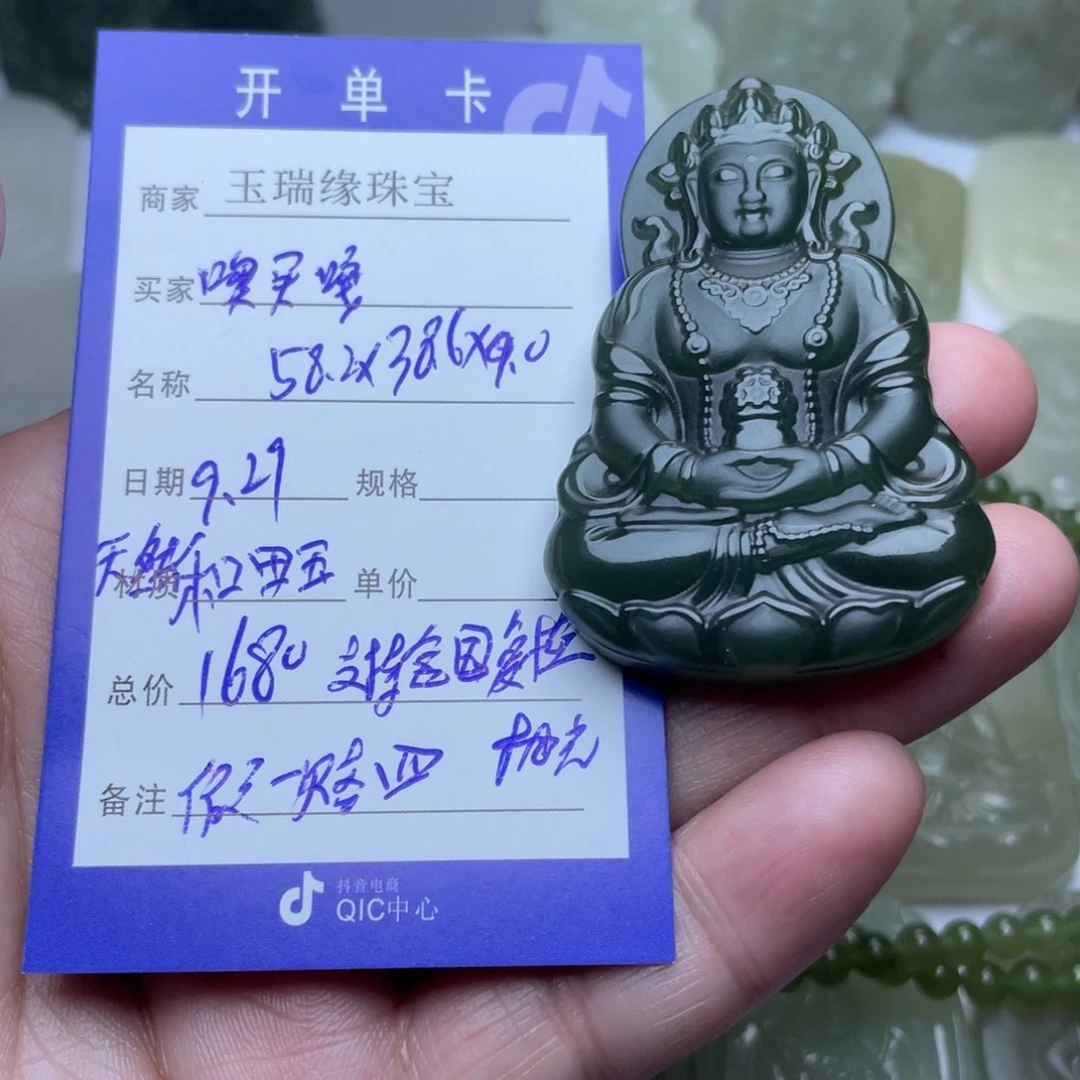 开单卡
商家 玉瑞缘珠宝
买家 噢买嘎
名称 58.2x38.6x9.0
日期 9.29 规格
材质 天然和田玉 单价
总价 1680 支持全国复检
备注 假一赔四 抛光
抖音电商
QIC中心